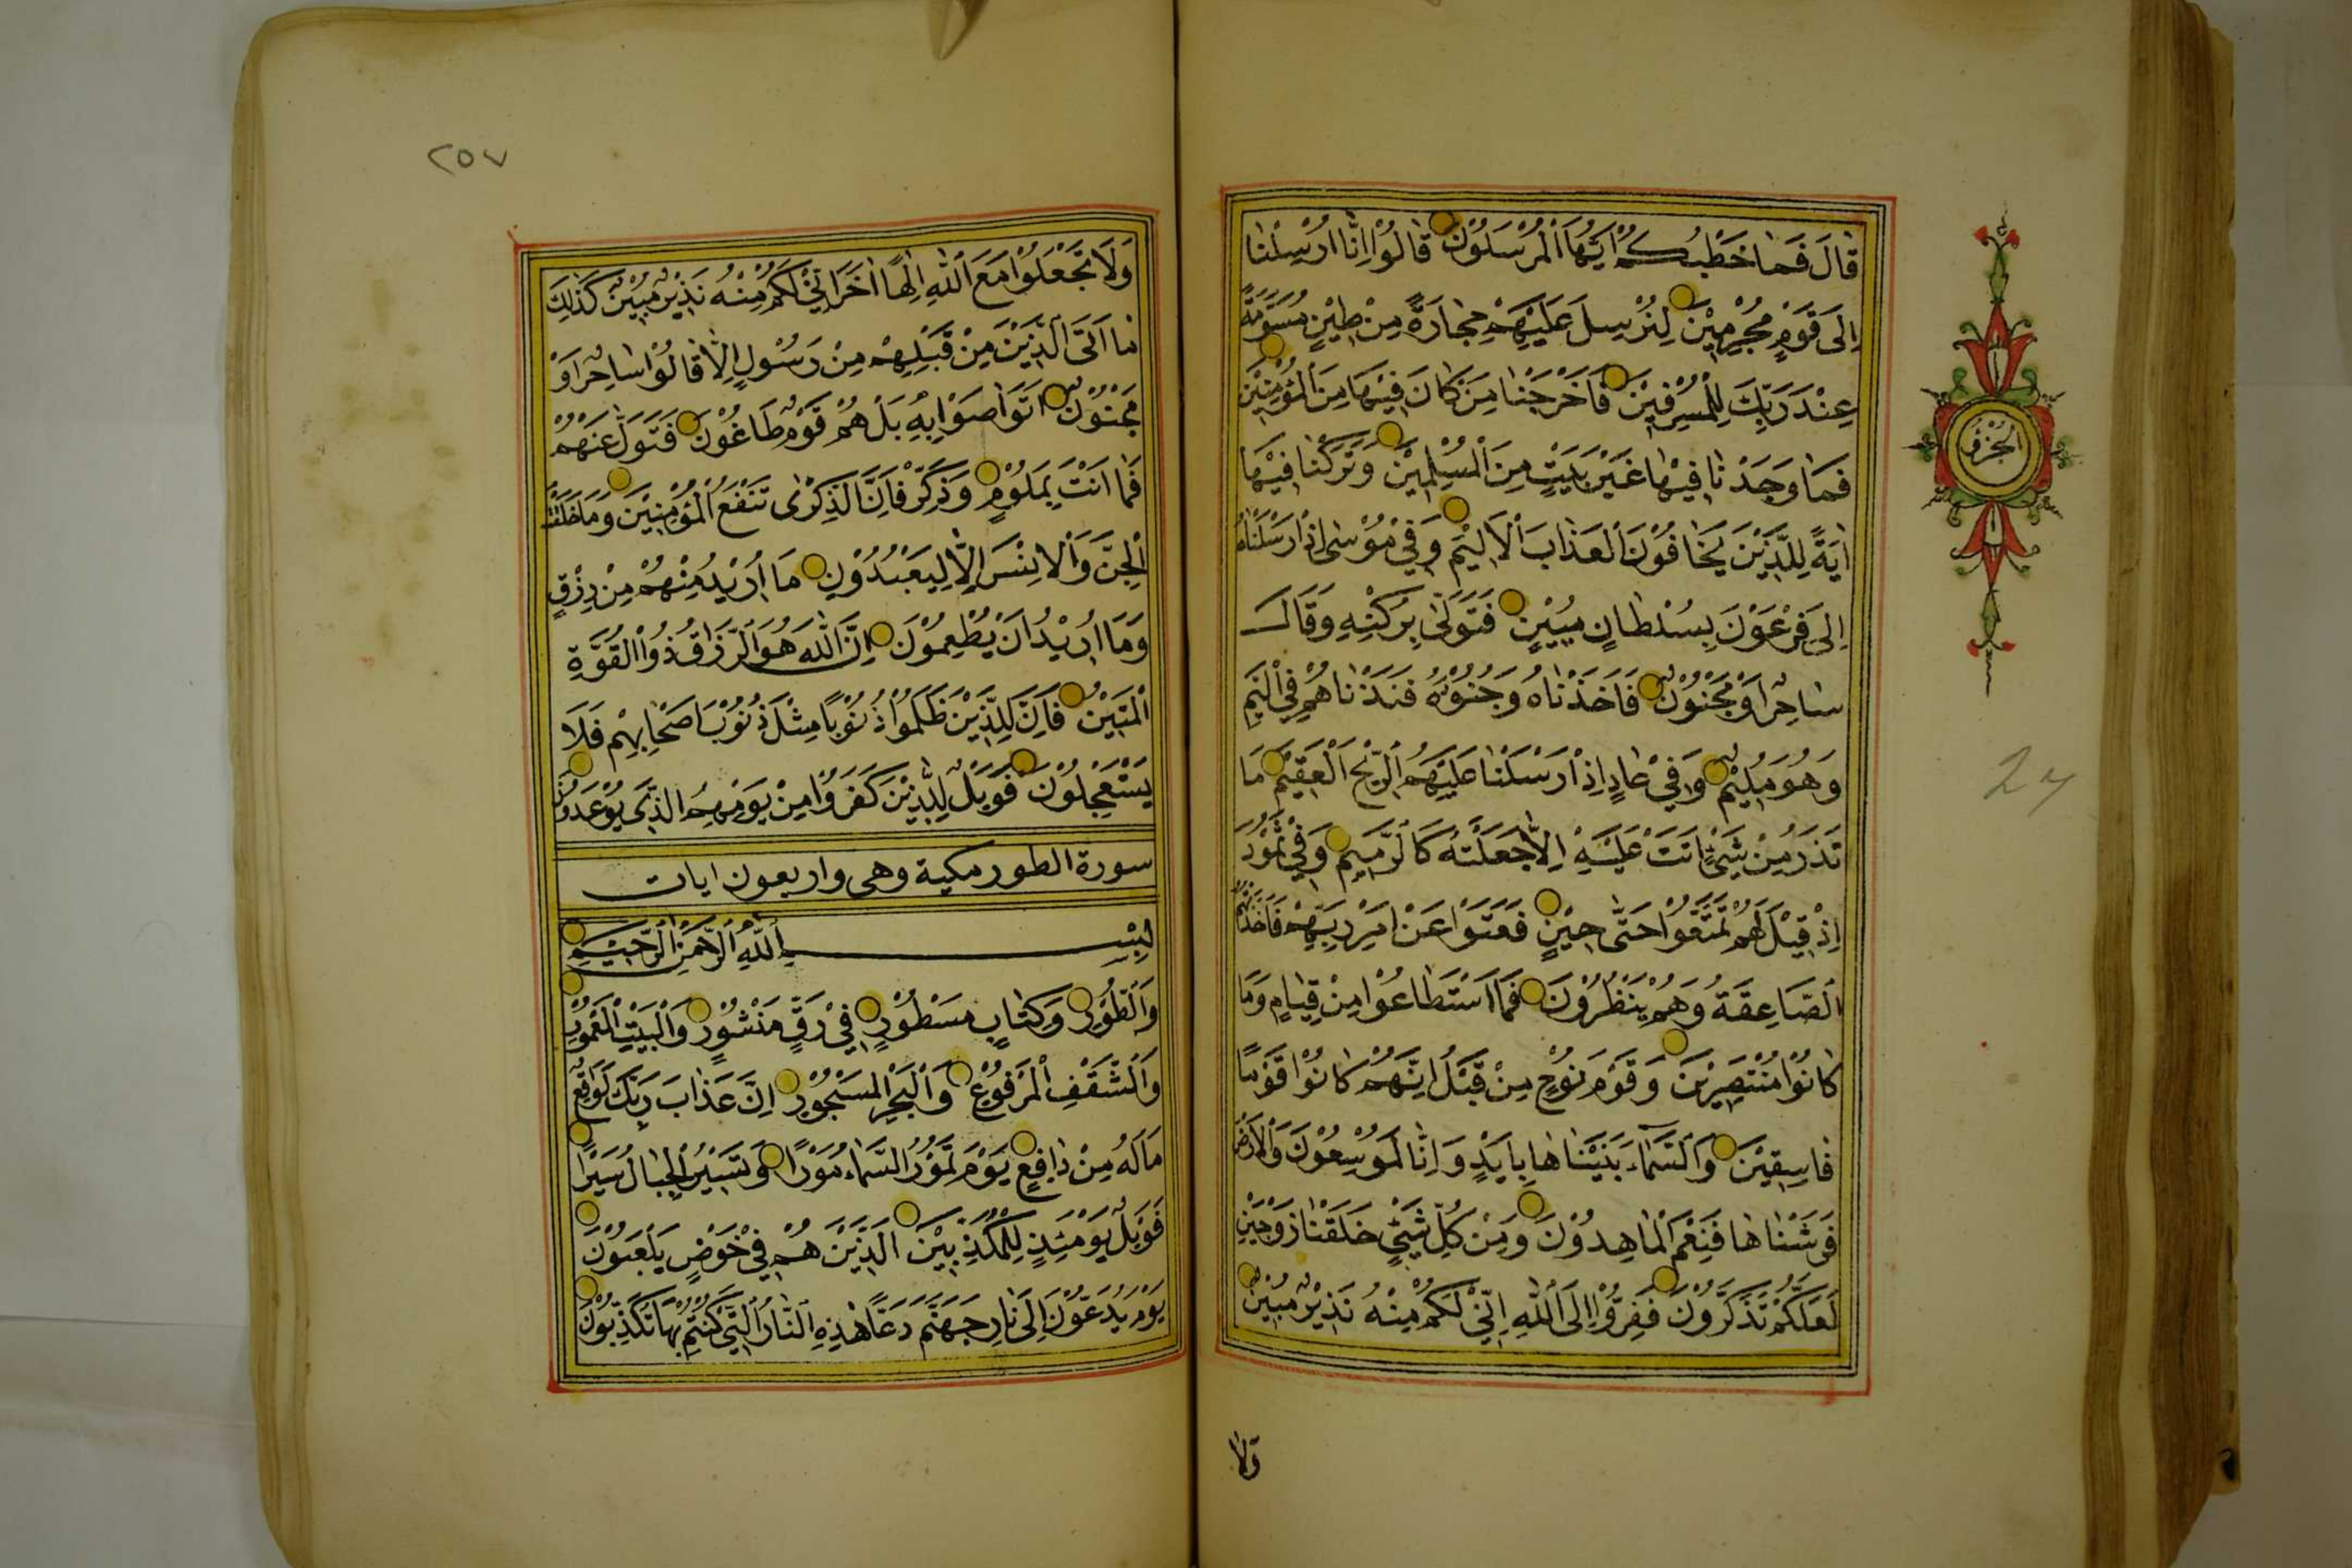 قَالَ فَمَا خَطْبُكُمْ اَيُّهَا الْمُرْسَلُوْنَ قَالُوْا اِنَّا اُرْسِلْنَا
اِلَى قَوْمٍ مُجْرِمِيْنَ لِنُرْسِلَ عَلَيْهِمْ حِجَارَةً مِنْ طِيْنٍ مُسَوَّمَةً
عِنْدَ رَبِّكَ لِلْمُسْرِفِيْنَ فَاَخْرَجْنَا مَنْ كَانَ فِيْهَا مِنَ الْمُؤْمِنِيْنَ
فَمَا وَجَدْنَا فِيْهَا غَيْرَ بَيْتٍ مِنَ الْمُسْلِمِيْنَ وَتَرَكْنَا فِيْهَا
اٰيَةً لِلَّذِيْنَ يَخَافُوْنَ الْعَذَابَ الْاَلِيْمَ وَفِيْ مُوْسٰى اِذْ اَرْسَلْنَاهُ
اِلٰى فِرْعَوْنَ بِسُلْطَانٍ مُبِيْنٍ فَتَوَلّٰى بِرُكْنِهِ وَقَالَ
سَاحِرٌ اَوْ مَجْنُوْنٌ فَاَخَذْنَاهُ وَجُنُوْدَهُ فَنَبَذْنَاهُمْ فِي الْيَمِّ
وَهُوَ مُلِيْمٌ وَفِيْ عَادٍ اِذْ اَرْسَلْنَا عَلَيْهِمُ الرِّيْحَ الْعَقِيْمَ مَا
تَذَرُ مِنْ شَيْءٍ اَتَتْ عَلَيْهِ اِلَّا جَعَلَتْهُ كَالرَّمِيْمِ وَفِيْ ثَمُوْدَ
اِذْ قِيْلَ لَهُمْ تَمَتَّعُوْا حَتّٰى حِيْنٍ فَعَتَوْا عَنْ اَمْرِ رَبِّهِمْ فَاَخَذَتْهُمُ
الصَّاعِقَةُ وَهُمْ يَنْظُرُوْنَ فَمَا اسْتَطَاعُوْا مِنْ قِيَامٍ وَمَا
كَانُوْا مُنْتَصِرِيْنَ وَقَوْمَ نُوْحٍ مِنْ قَبْلُ اِنَّهُمْ كَانُوْا قَوْمًا
فَاسِقِيْنَ وَالسَّمَاءَ بَنَيْنَاهَا بِاَيْدٍ وَاِنَّا لَمُوْسِعُوْنَ وَالْاَرْضَ
فَرَشْنَاهَا فَنِعْمَ الْمَاهِدُوْنَ وَمِنْ كُلِّ شَيْءٍ خَلَقْنَا زَوْجَيْنِ
لَعَلَّكُمْ تَذَكَّرُوْنَ فَفِرُّوْا اِلَى اللّٰهِ اِنِّيْ لَكُمْ مِنْهُ نَذِيْرٌ مُبِيْنٌ
ولا
الجزؤ
27
٢٥٧
وَلَا تَجْعَلُوْا مَعَ اللّٰهِ اِلٰهًا اٰخَرَ اِنِّيْ لَكُمْ مِنْهُ نَذِيْرٌ مُبِيْنٌ كَذٰلِكَ
مَا اَتَى الَّذِيْنَ مِنْ قَبْلِهِمْ مِنْ رَسُوْلٍ اِلَّا قَالُوْا سَاحِرٌ اَوْ
مَجْنُوْنٌ اَتَوَاصَوْا بِهِ بَلْ هُمْ قَوْمٌ طَاغُوْنَ فَتَوَلَّ عَنْهُمْ
فَمَا اَنْتَ بِمَلُوْمٍ وَذَكِّرْ فَاِنَّ الذِّكْرٰى تَنْفَعُ الْمُؤْمِنِيْنَ وَمَا خَلَقْتُ
الْجِنَّ وَالْاِنْسَ اِلَّا لِيَعْبُدُوْنِ مَا اُرِيْدُ مِنْهُمْ مِنْ رِزْقٍ
وَمَا اُرِيْدُ اَنْ يُطْعِمُوْنِ اِنَّ اللّٰهَ هُوَ الرَّزَّاقُ ذُوا الْقُوَّةِ
الْمَتِيْنُ فَاِنَّ لِلَّذِيْنَ ظَلَمُوْا ذَنُوْبًا مِثْلَ ذَنُوْبِ اَصْحَابِهِمْ فَلَا
يَسْتَعْجِلُوْنَ فَوَيْلٌ لِلَّذِيْنَ كَفَرُوْا مِنْ يَوْمِهِمُ الَّذِيْ يُوْعَدُوْنَ
سورة الطور مكية وهى واربعون ايات
بِسْمِ اللّٰهِ الرَّحْمٰنِ الرَّحِيْمِ
وَالطُّوْرِ وَكِتَابٍ مَسْطُوْرٍ فِيْ رَقٍّ مَنْشُوْرٍ وَالْبَيْتِ الْمَعْمُوْرِ
وَالسَّقْفِ الْمَرْفُوْعِ وَالْبَحْرِ الْمَسْجُوْرِ اِنَّ عَذَابَ رَبِّكَ لَوَاقِعٌ
مَا لَهُ مِنْ دَافِعٍ يَوْمَ تَمُوْرُ السَّمَاءُ مَوْرًا وَتَسِيْرُ الْجِبَالُ سَيْرًا
فَوَيْلٌ يَوْمَئِذٍ لِلْمُكَذِّبِيْنَ الَّذِيْنَ هُمْ فِيْ خَوْضٍ يَلْعَبُوْنَ
يَوْمَ يُدَعُّوْنَ اِلٰى نَارِ جَهَنَّمَ دَعًّا هٰذِهِ النَّارُ الَّتِيْ كُنْتُمْ بِهَا تُكَذِّبُوْنَ